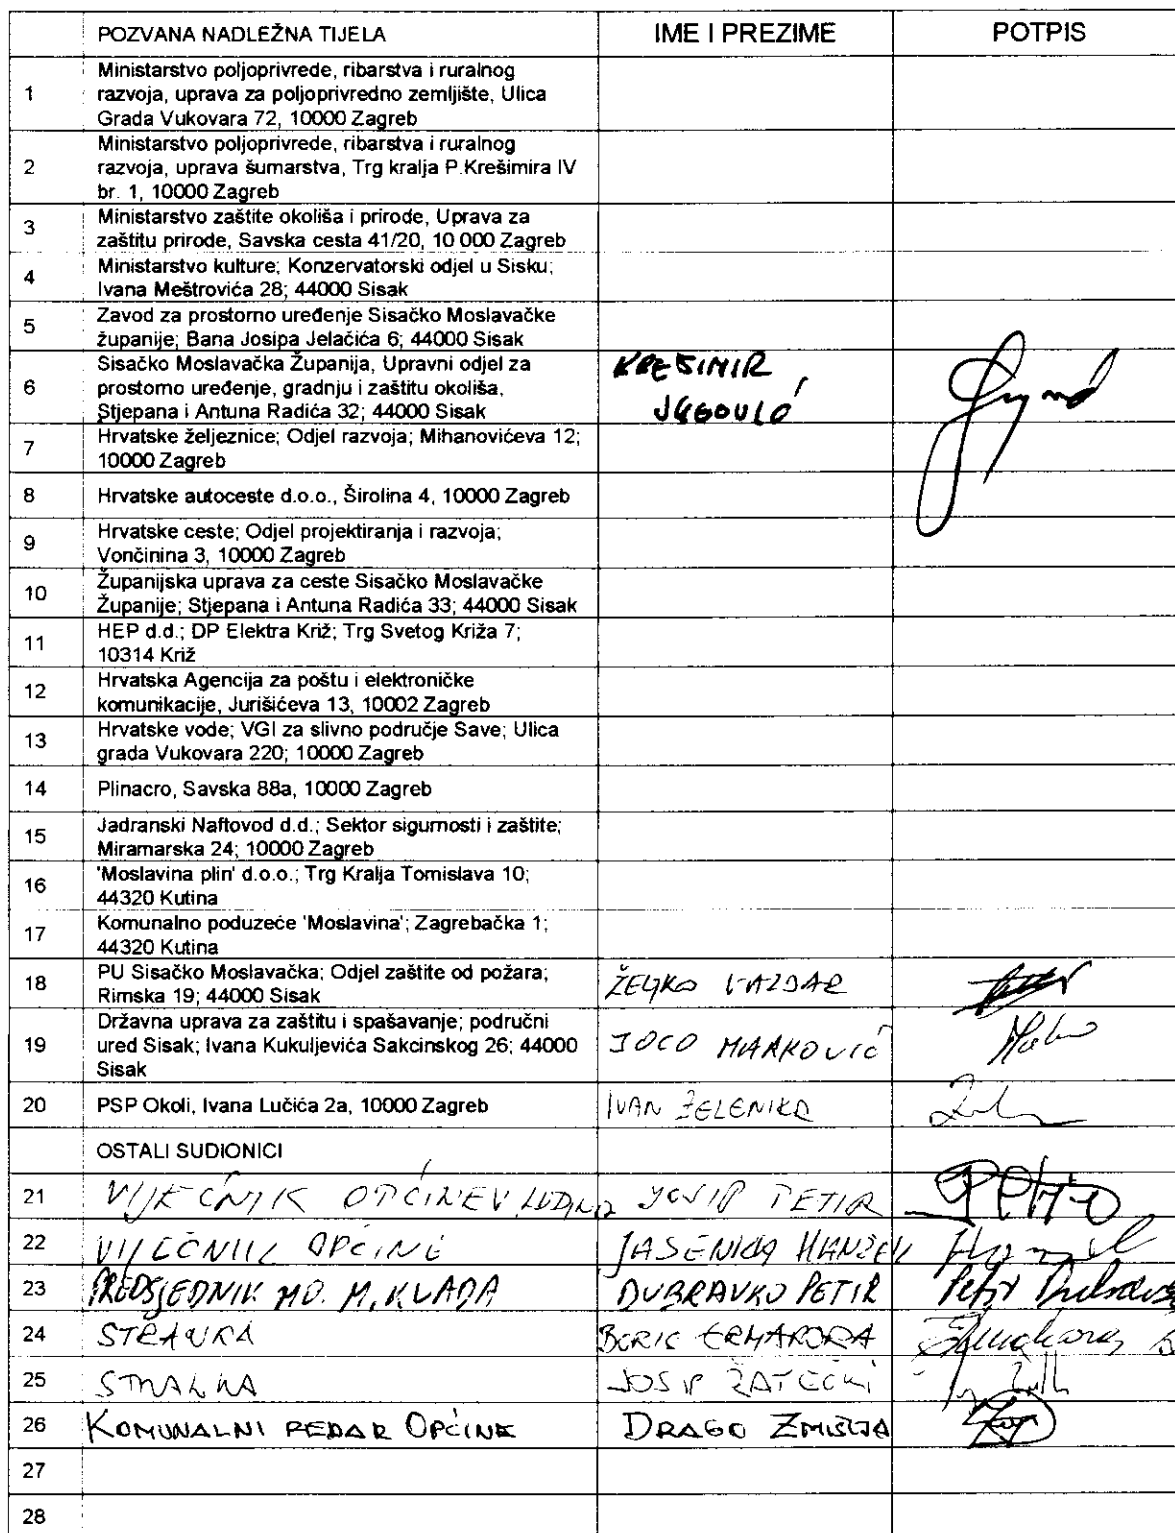 POZVANA NADLEŽNA TIJELA IME I PREZIME POTPIS
1 Ministarstvo poljoprivrede, ribarstva i ruralnog
razvoja, uprava za poljoprivredno zemljište, Ulica
Grada Vukovara 72, 10000 Zagreb
2 Ministarstvo poljoprivrede, ribarstva i ruralnog
razvoja, uprava šumarstva, Trg kralja P.Krešimira IV
br. 1, 10000 Zagreb
3 Ministarstvo zaštite okoliša i prirode, Uprava za
zaštitu prirode, Savska cesta 41/20, 10 000 Zagreb
4 Ministarstvo kulture; Konzervatorski odjel u Sisku;
Ivana Meštrovića 28; 44000 Sisak
5 Zavod za prostorno uređenje Sisačko Moslavačke
županije; Bana Josipa Jelačića 6; 44000 Sisak
6 Sisačko Moslavačka Županija, Upravni odjel za
prostorno uređenje, gradnju i zaštitu okoliša,
Stjepana i Antuna Radića 32; 44000 Sisak
KREŠIMIR
7 Hrvatske željeznice; Odjel razvoja; Mihanovićeva 12;
10000 Zagreb
8 Hrvatske autoceste d.o.o., Širolina 4, 10000 Zagreb
9 Hrvatske ceste; Odjel projektiranja i razvoja;
Vončinina 3, 10000 Zagreb
10 Županijska uprava za ceste Sisačko Moslavačke
Županije; Stjepana i Antuna Radića 33; 44000 Sisak
11 HEP d.d.; DP Elektra Križ; Trg Svetog Križa 7;
10314 Križ
12 Hrvatska Agencija za poštu i elektroničke
komunikacije, Jurišićeva 13, 10002 Zagreb
13 Hrvatske vode; VGI za slivno područje Save; Ulica
grada Vukovara 220; 10000 Zagreb
14 Plinacro, Savska 88a, 10000 Zagreb
15 Jadranski Naftovod d.d.; Sektor sigurnosti i zaštite;
Miramarska 24; 10000 Zagreb
16 'Moslavina plin' d.o.o.; Trg Kralja Tomislava 10;
44320 Kutina
17 Komunalno poduzeće 'Moslavina'; Zagrebačka 1;
44320 Kutina
18 PU Sisačko Moslavačka; Odjel zaštite od požara;
Rimska 19; 44000 Sisak
ŽELJKO VAZDAR
19 Državna uprava za zaštitu i spašavanje; područni
ured Sisak; Ivana Kukuljevića Sakcinskog 26; 44000
Sisak
JOCO MARKOVIĆ
20 PSP Okoli, Ivana Lučića 2a, 10000 Zagreb IVAN ZELENIKA
OSTALI SUDIONICI
21 VIJEĆNIK OPĆINE JOSIP PETIR
22 VIJEĆNIK OPĆINE JASENKA
23 PREDSJEDNIK MO. M. KLADA DUBRAVKO PETIR Petir
24 STRANKA
25 STRANKA JOSIP ZATEČKI
26 KOMUNALNI REDAR OPĆINE DRAGO
27
28